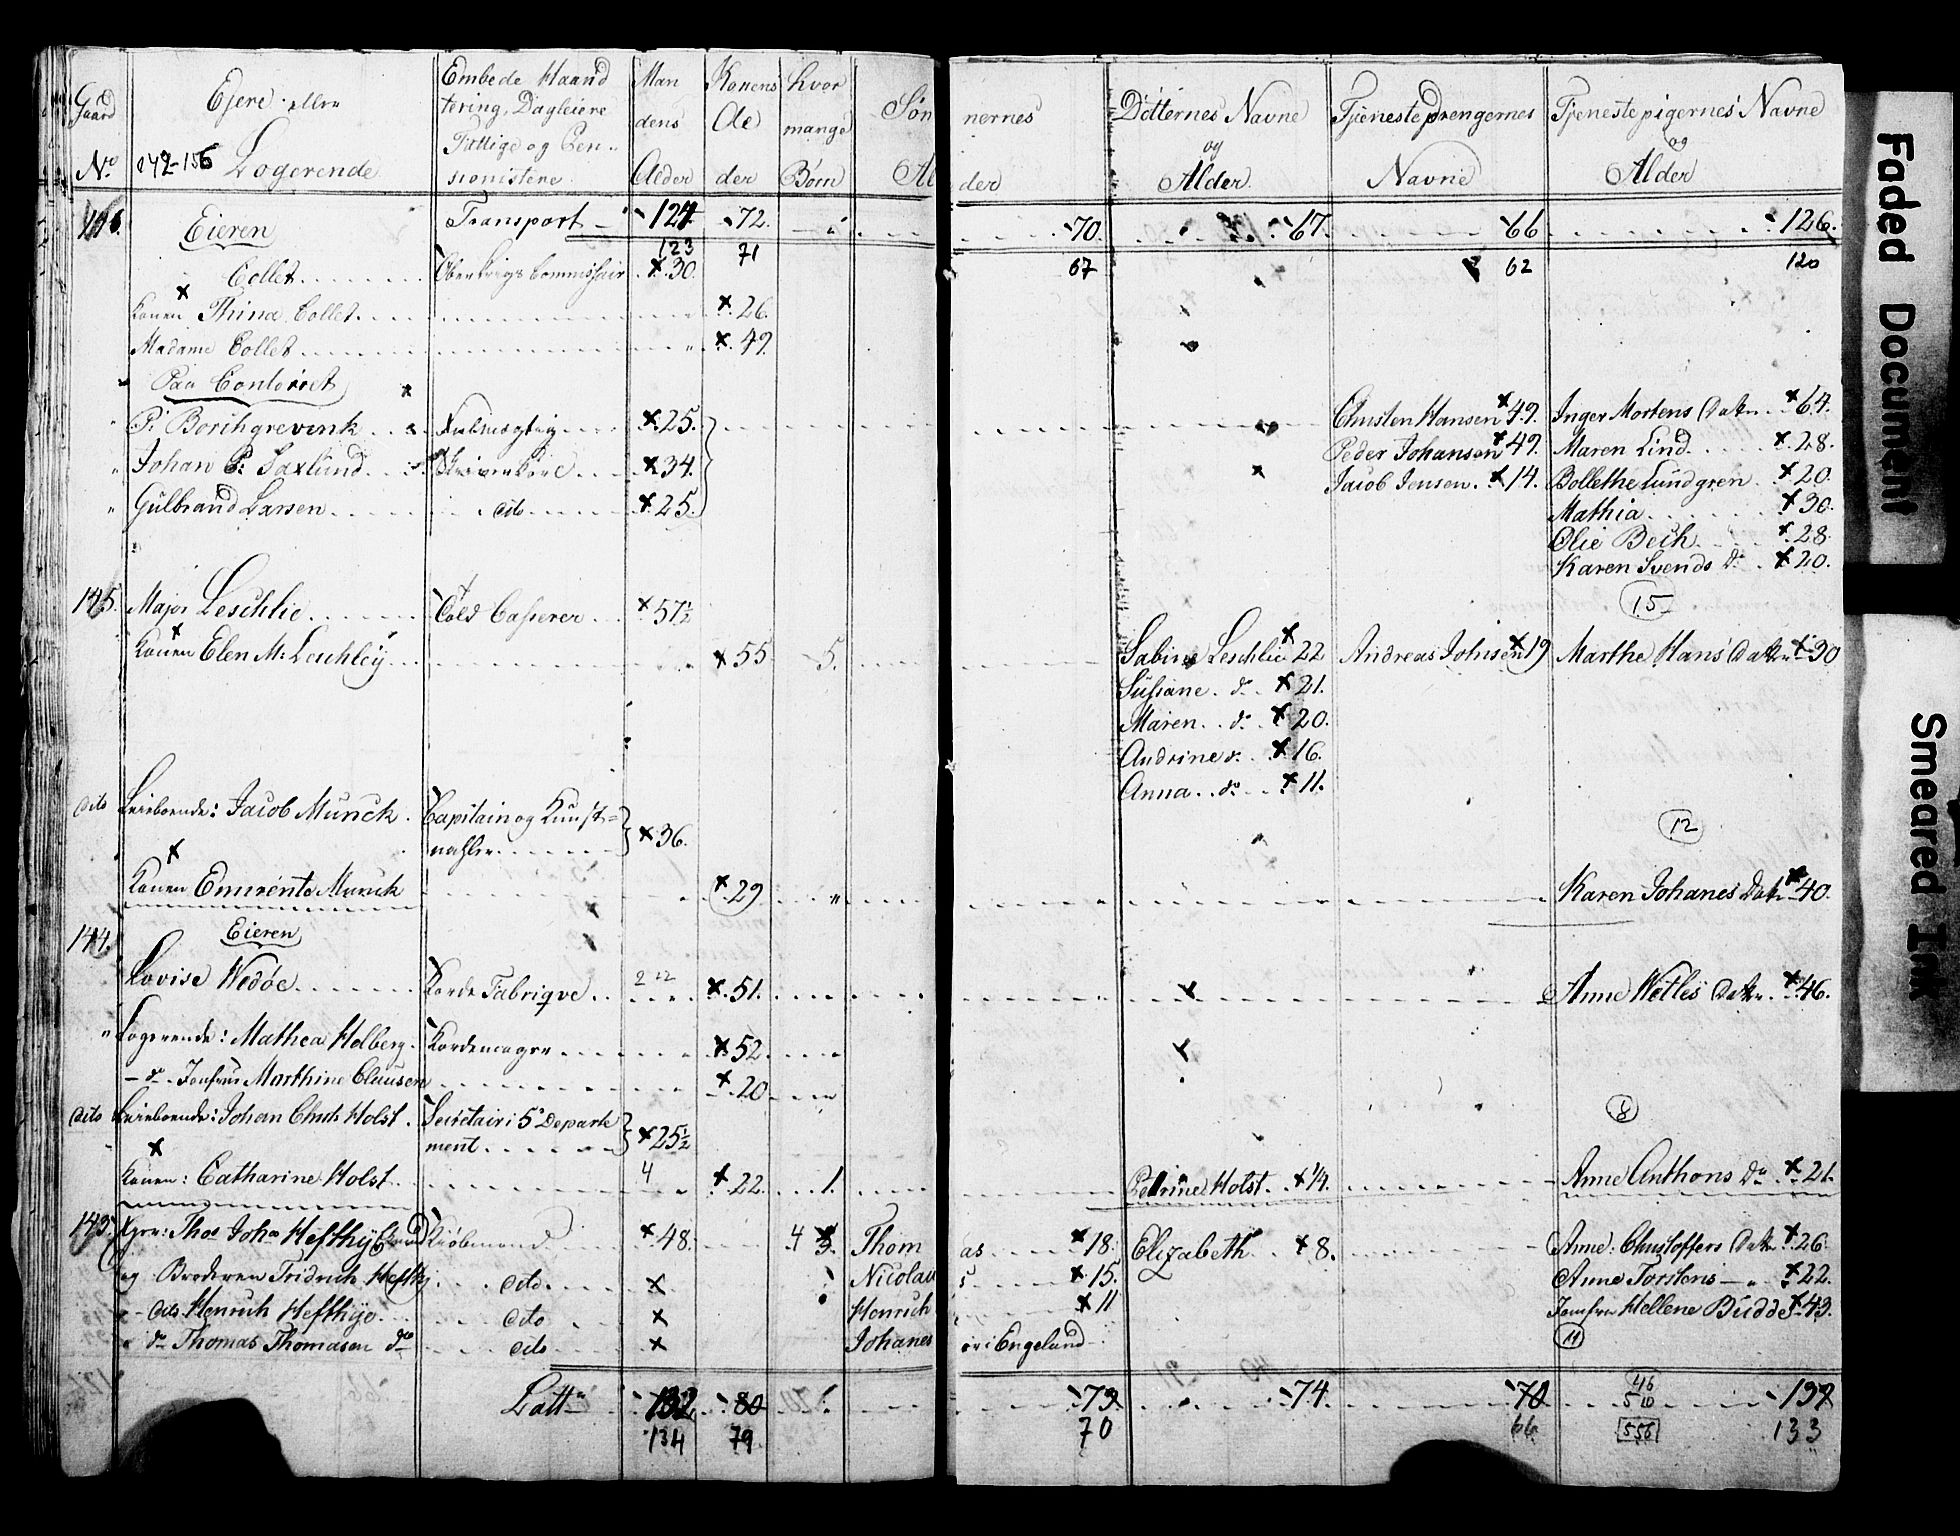 Gaard No
Ejere eller Logerende 142-156
Embede Haandtering, Dagleiere Fattige og Pensionistere
Mandens Alder
Konens Alder
hvor mange Børn
Sønnernes Alder
Døtternes Navne og Alder
Tjenestedrengernes Navne
Tjenestepigernes Navne og Alder
146. Eieren Transport 72. 70. 67. 66 126.
123 71 67 62 120
Collet Oberkrigs Commissair × 30.
× Konen Thina Collet × 26.
Madame Collet × 49.
Paa Contoiret ×
P: Borchgrevink Fulmægtig × 25. Christen Hansen × 49. Inger Mortens Datter × 64.
Peder Johansen × 49. Maren Lind × 28.
Johan P: Saxlund Skriverkarl × 34. Jacob Jensen × 14. Bollethe Lundgren × 20.
Gulbrand Larsen dito × 25. Mathia × 30.
Olie Bech × 28.
Karen Svends Do × 20.
15
145. Major Leschlie Told Casserer × 57½
× Konen Elen M: Leschley × 55 5. Sabine Leschlie × 22 Andreas Johnsen × 19 Marthe Hans Datter × 30
Susane do × 21.
Maren do × 20.
Andrine do × 16.
Anna do × 11.
dito Leieboende: Jacob Munck Capitain og Kunst=
mahler × 36.
12
×
Konen Emerente Munck × 29 " Karen Johanes Datter × 40.
144. Eieren
Lovise Wedøe Korde Fabriqve × 51. Anne Wetles Datter × 46.
" Logerende: Mathea Holberg Kordemager × 52
do Jomfrue Marthine Clausen × 20
8
dito Leieboende: Johan Chris Holst Secretair i 5te Departe
ment × 25½
×
Konen: Catharine Holst 4 × 22. 1. Petrine Holst × ¼. Anne Anthons Do × 21.
143. Thos Johs Hefthye Kiøbmand × 48. 4 3. Thomas × 18. Elizabeth × 8. Anne Christoffers Datter × 26
og Broderen Fridrich Heftye dito × Nicolaus × 15. Anne Torstens " × 22.
dito Henrich Hefthye dito × Henrich × 11 Jomfru Hellene Budde × 43.
do Thomas Thomasen do dito × Johanes er i Engeland 11
Latts 132 80 73 74. 70 46 510 137
134 79 70 66 556 133
Faded Document
Smeared Ink